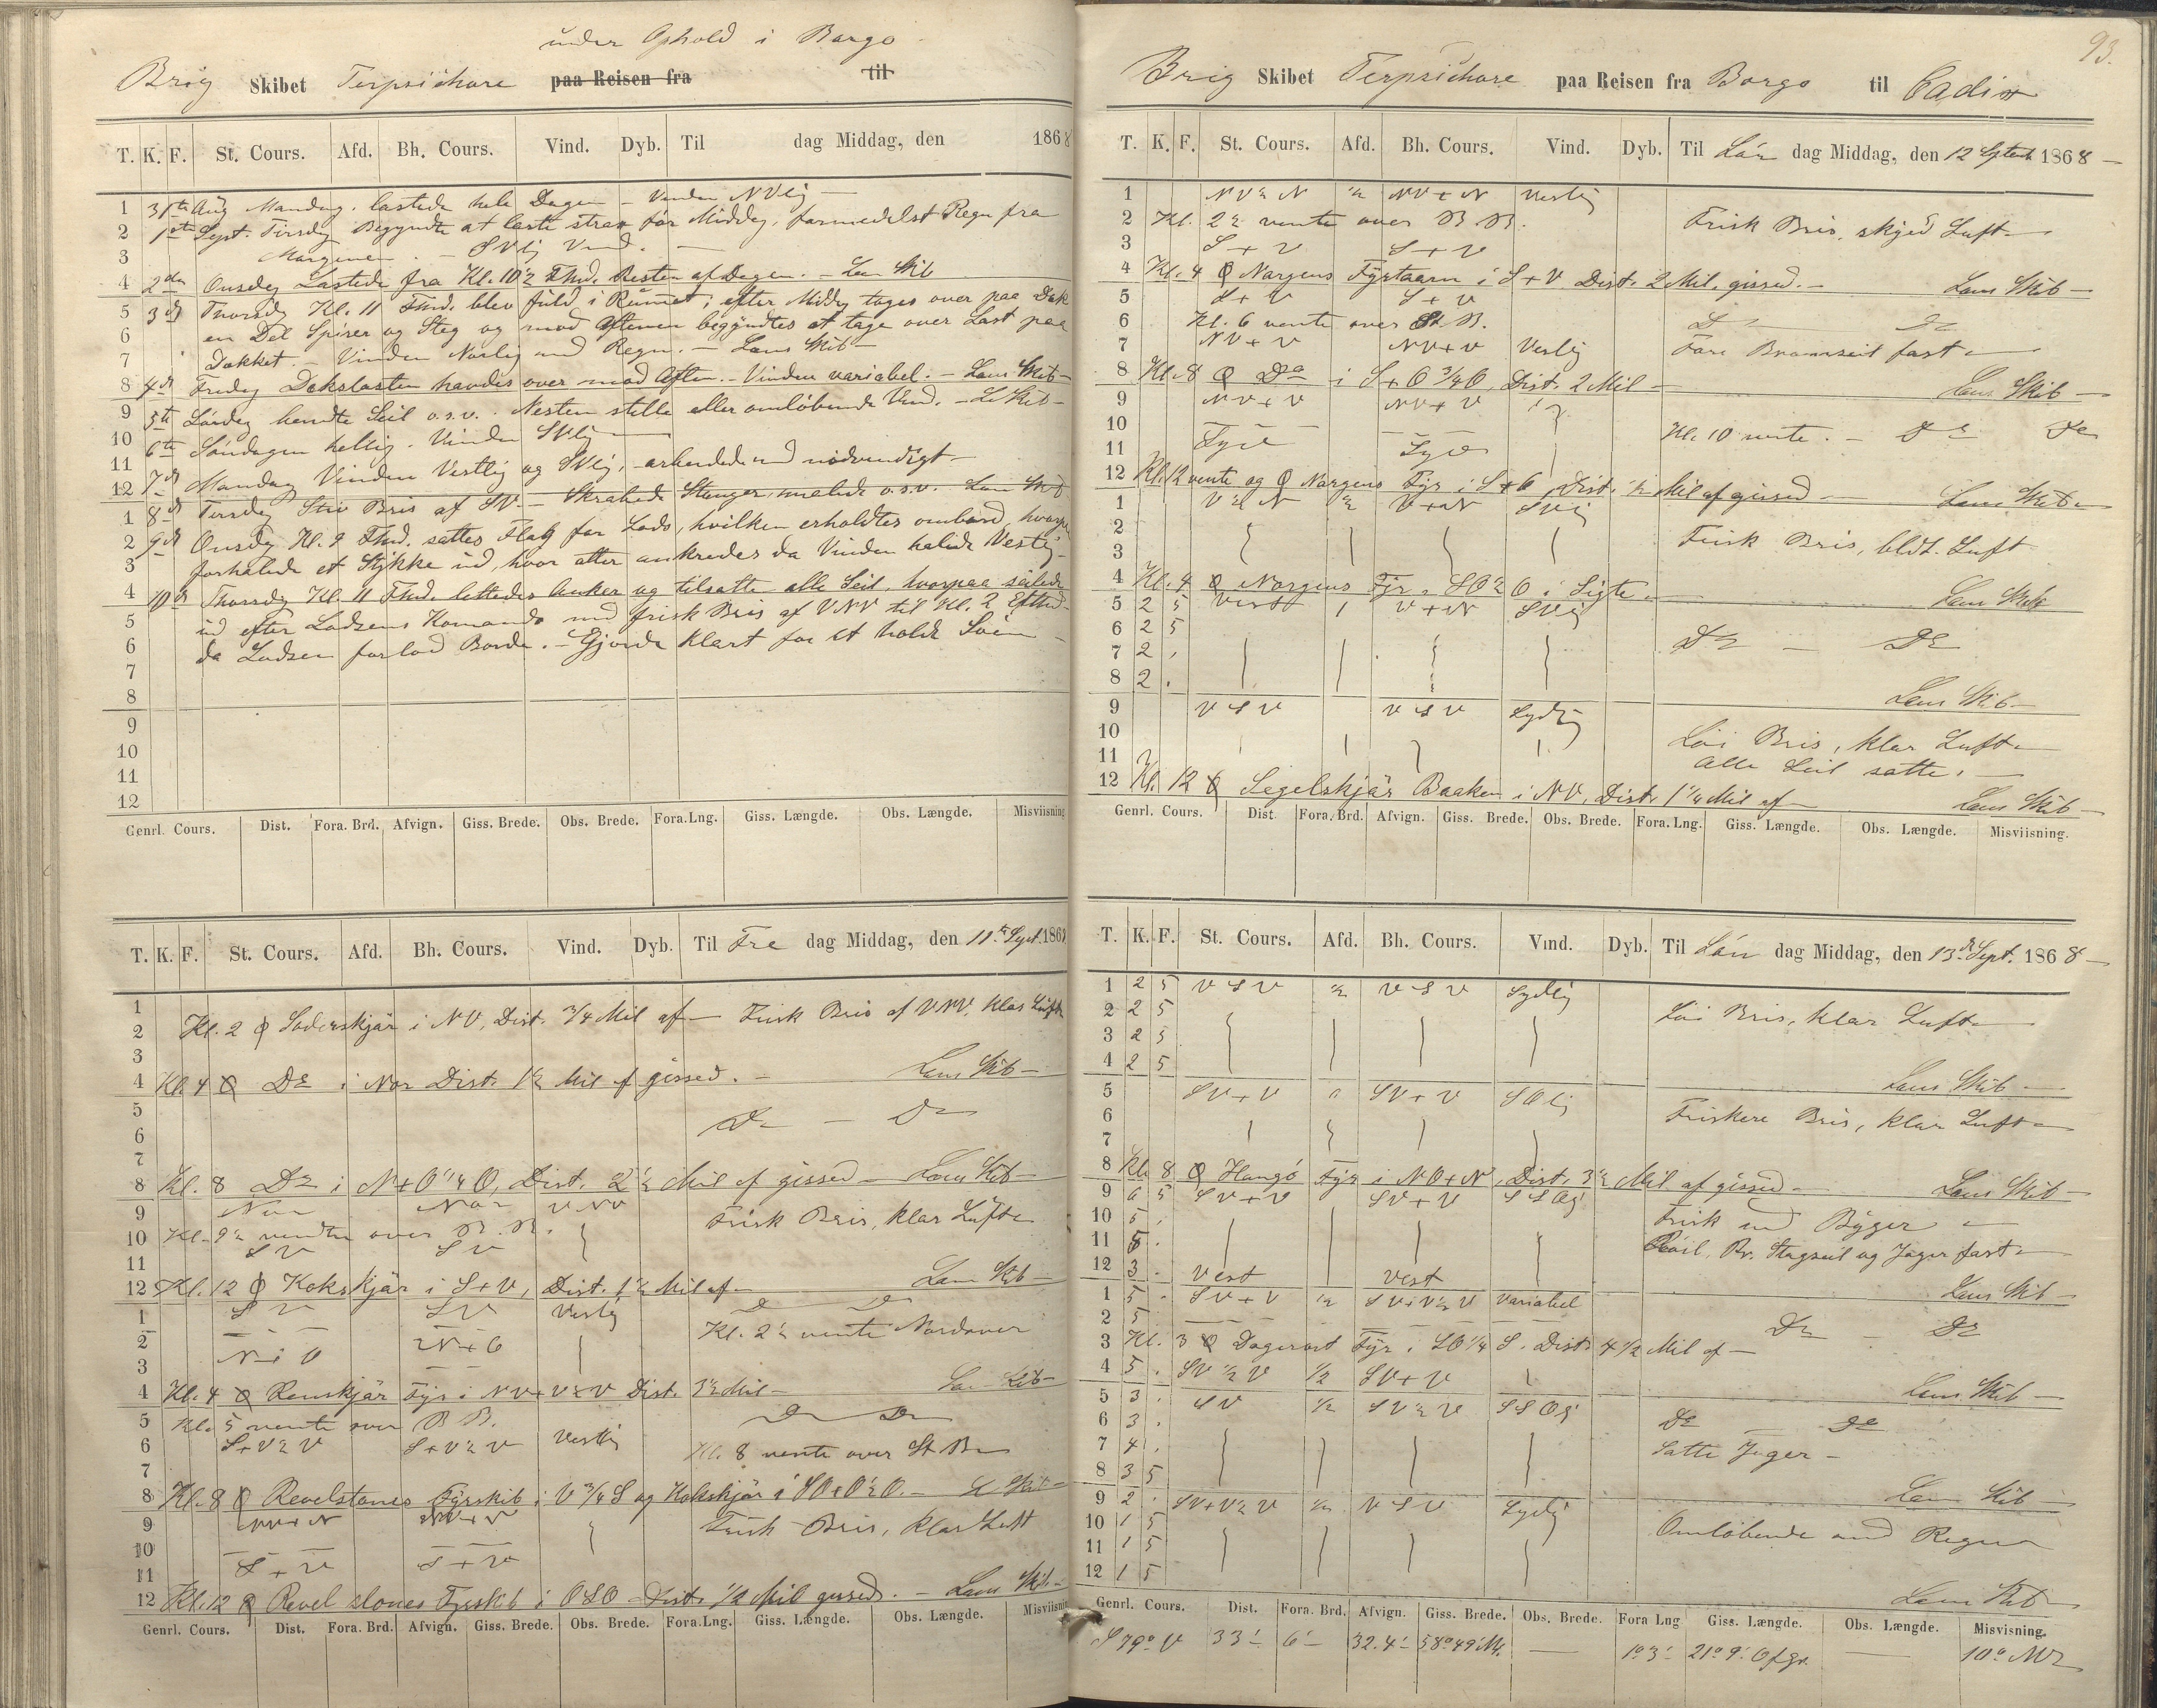 under Ophold i Borgo
Brig Skibet Terpsichore paa Reisen fra til
T. K. F. St. Cours. Afd. Bh. Cours. Vind. Dyb. Til dag Middag, den 1868
1 31te Aug Mandag. lastede hele Dagen – Vinden NVlig –
2 1ste Sept. Tirsdag Begyndte at laste strax før Middag, formedelst Regn fra
3 Morgenen. – SVlig Vind. –
4 2den Onsdag Lastede fra Kl. 10½ Fmd. Resten af Dagen. – Lens Skib
5 3de Thorsdag Kl. 11 Fmd. blev fuld i Rumet; efter Middag toges over paa Dæk
6 en Del Spirer og Steg og mod Aftenen begyndtes at tage over Last paa
7 Dækket – Vinden Norlig med Regn. – Lens Skib –
8 4de Fredag Dækslasten havdes over mod Aften. – Vinden variabel. – Lens Skib –
9 5te Lørdag hendte Seil o.s.v. Nesten stille eller omløbende Vind. – L. Skib –
10 6te Søndagen hellig. Vinden SVlig
11 7de Mandag Vinden Vestlig og SVlig, arbeidede med nødvendigt
12 8de Tirsdag Stiv Bris af SV. – Skrabede Stænger, malede o.s.v. Lens Skib
1
2 9de Onsdag Kl. 9 Fmd. sattes Flag for Lods, hvilken erholdtes ombord, hvorpaa
3 forhalede et Stykke ud, hvor atter ankredes da Vinden halede Vestlig –
4 10de Thorsdag Kl. 11 Fmd. lettedes Anker og tilsatte alle Seil, hvorpaa seilede
5 ud efter Lodsens Komando med frisk Bris af VNV til Kl. 2 Eftmd.
6 da Lodsen forlod Borde. – Gjorde klart for at holde Søen –
7
8
9
10
11
12
Genrl. Cours. Dist. Fora. Brd. Afvign. Giss. Brede. Obs. Brede. Fora.Lng. Giss. Længde. Obs. Længde. Misviisning
T. K. F. St. Cours. Afd. Bh. Cours. Vind. Dyb. Til Fre dag Middag, den 11te Sept. 1868
1
2 Kl. 2 Søderskjær i NV, Dist. ¾ Mil af – Frisk Bris af VNV, klar Luft
3
4 Kl. 4 Do i Nor Dist. 1½ Mil af gissed. – Lens Skib –
5 Do – Do
6
7
8 Kl. 8 Do i N+O¼O, Dist. 2½ Mil af gissed – Lens Skib –
9 Nor Nor VNV Frisk Bris, klar Luft
10 Kl. 9½ vendte over B.B.
11 SV SV
12 Kl. 12 Kokskjær i S+V, Dist. 1½ Mil af – Lens Skib –
1 SV SV Vestlig Do Do
2 Kl. 2½ vente Nordover
3
4 Kl. 4 Renskjær Fyr i NV+V½V Dist. 3½ Mil – Lens Skib –
5 Kl. 5 vente over B B. Do Do
6 S+V½V S+V½V Vestlig Kl. 8 vente over St. B
7
8 Kl. 8 Revelstones Fyrskib i V¾S og Kokskjær i SO+O½O. – L Skib –
9 NV+N NV+N Frisk Bris, klar Luft
10
11 S+V S+V
12 Kl. 12 Revelstones Fyrskib i OSO Dist. ½ Mil gissed. – Lens Skib –
Genrl. Cours. Dist. Fora. Brd. Afvign. Giss. Brede. Obs. Brede. Fora.Lng. Giss. Længde. Obs. Længde. Misviisnin
93.
Brig Skibet Terpsichore paa Reisen fra Borgo til Cadix
T. K. F. St. Cours. Afd. Bh. Cours. Vind. Dyb. Til Lør dag Middag, den 12 Septbr 1868 –
1 NV½N ½ NV+N Vestlig
2 Kl. 2½ vente over B.B. Frisk Bris, skyed Luft
3 S+V S+V
4 Kl. 4 Nargens Fyrtaarn i S+V Dist. 2 Mil. gissed. – Lens Skib –
5 S+V S+V
6 Kl. 6 vente over St B. Do Do
7 NV+V NV+V Vestlig Fore Bramseil fast
8 Kl. 8 Do i S+O¾O, Dist. 2 Mil – Lens Skib –
9 NV+V NV+V
10 Kl. 10 vente. – Do Do
11 Syd Syd
12 Kl. 12 vente og Nargens Fyr i S+O Dist. ½ Mil af gissed – Lens Skib
1 V½N ½ V+N SVlig
2 Frisk Bris, bldt. Luft
3
4 Kl. 4 Nargens Fyr, SO½O i Sigte Lens Skib
5 2 5 Vest 1 V+N SVlig
6 2 5 Do – Do
7 2 .
8 2 . Lens Skib –
9 VSV VSV Sydlig
10 Løi Bris, klar Luft
11 alle Seil satte. –
12 Kl. 12 Segelskjær Baaken i NV, Dist. 1¼ Mil af – Lens Skib –
Genrl. Cours. Dist. Fora. Brd. Afvign. Giss. Brede. Obs. Brede. Fora.Lng. Giss. Længde. Obs. Længde. Misviisning.
T. K. F. St. Cours. Afd. Bh. Cours. Vind. Dyb. Til Søn dag Middag, den 13de Sept. 1868 –
1 2 5 VSV ½ VSV Sydlig
2 2 5 Løi Bris, klar Luft
3 2 5
4 2 5 Lens Skib –
5 SV+V 0 SV+V SOlig
6 Friskere Bris, klar Luft
7
8 Kl. 8 Hangø Fyr i NO+N, Dist. 3½ Mil af gissed – Lens Skib –
9 6 5 SV+V SV+V SSOlig
10 5 . Frisk med Byger
11 5 . Røil, Br. Stagseil og Jager fast
12 3 . Vest Vest Lens Skib –
1 5 . SV+V ½ SV+V½V Variabel
2 5 . Do – Do
3 Kl. 3 Dagerort Fyr i SO¼S. Dist. 4½ Mil af –
4 5 . SV½V ½ SV+V Lens Skib –
5 3 . SV ½ SV½V SSOlig
6 3 . Do Do
7 4 . Satte Jager –
8 3 5 Lens Skib
9 2 . SV+V½V ½ VSV Sydlig
10 1 5 Omløbende med Regn
11 1 5
12 1 5 Lens Skib
Genrl. Cours. Dist. Fora. Brd. Afvign. Giss. Brede. Obs. Brede. Fora Lng Giss. Længde. Obs. Længde. Misvisning.
S 79° V 33' 6' 32.4' 58°49' — 1°3' 21°9' — 10°